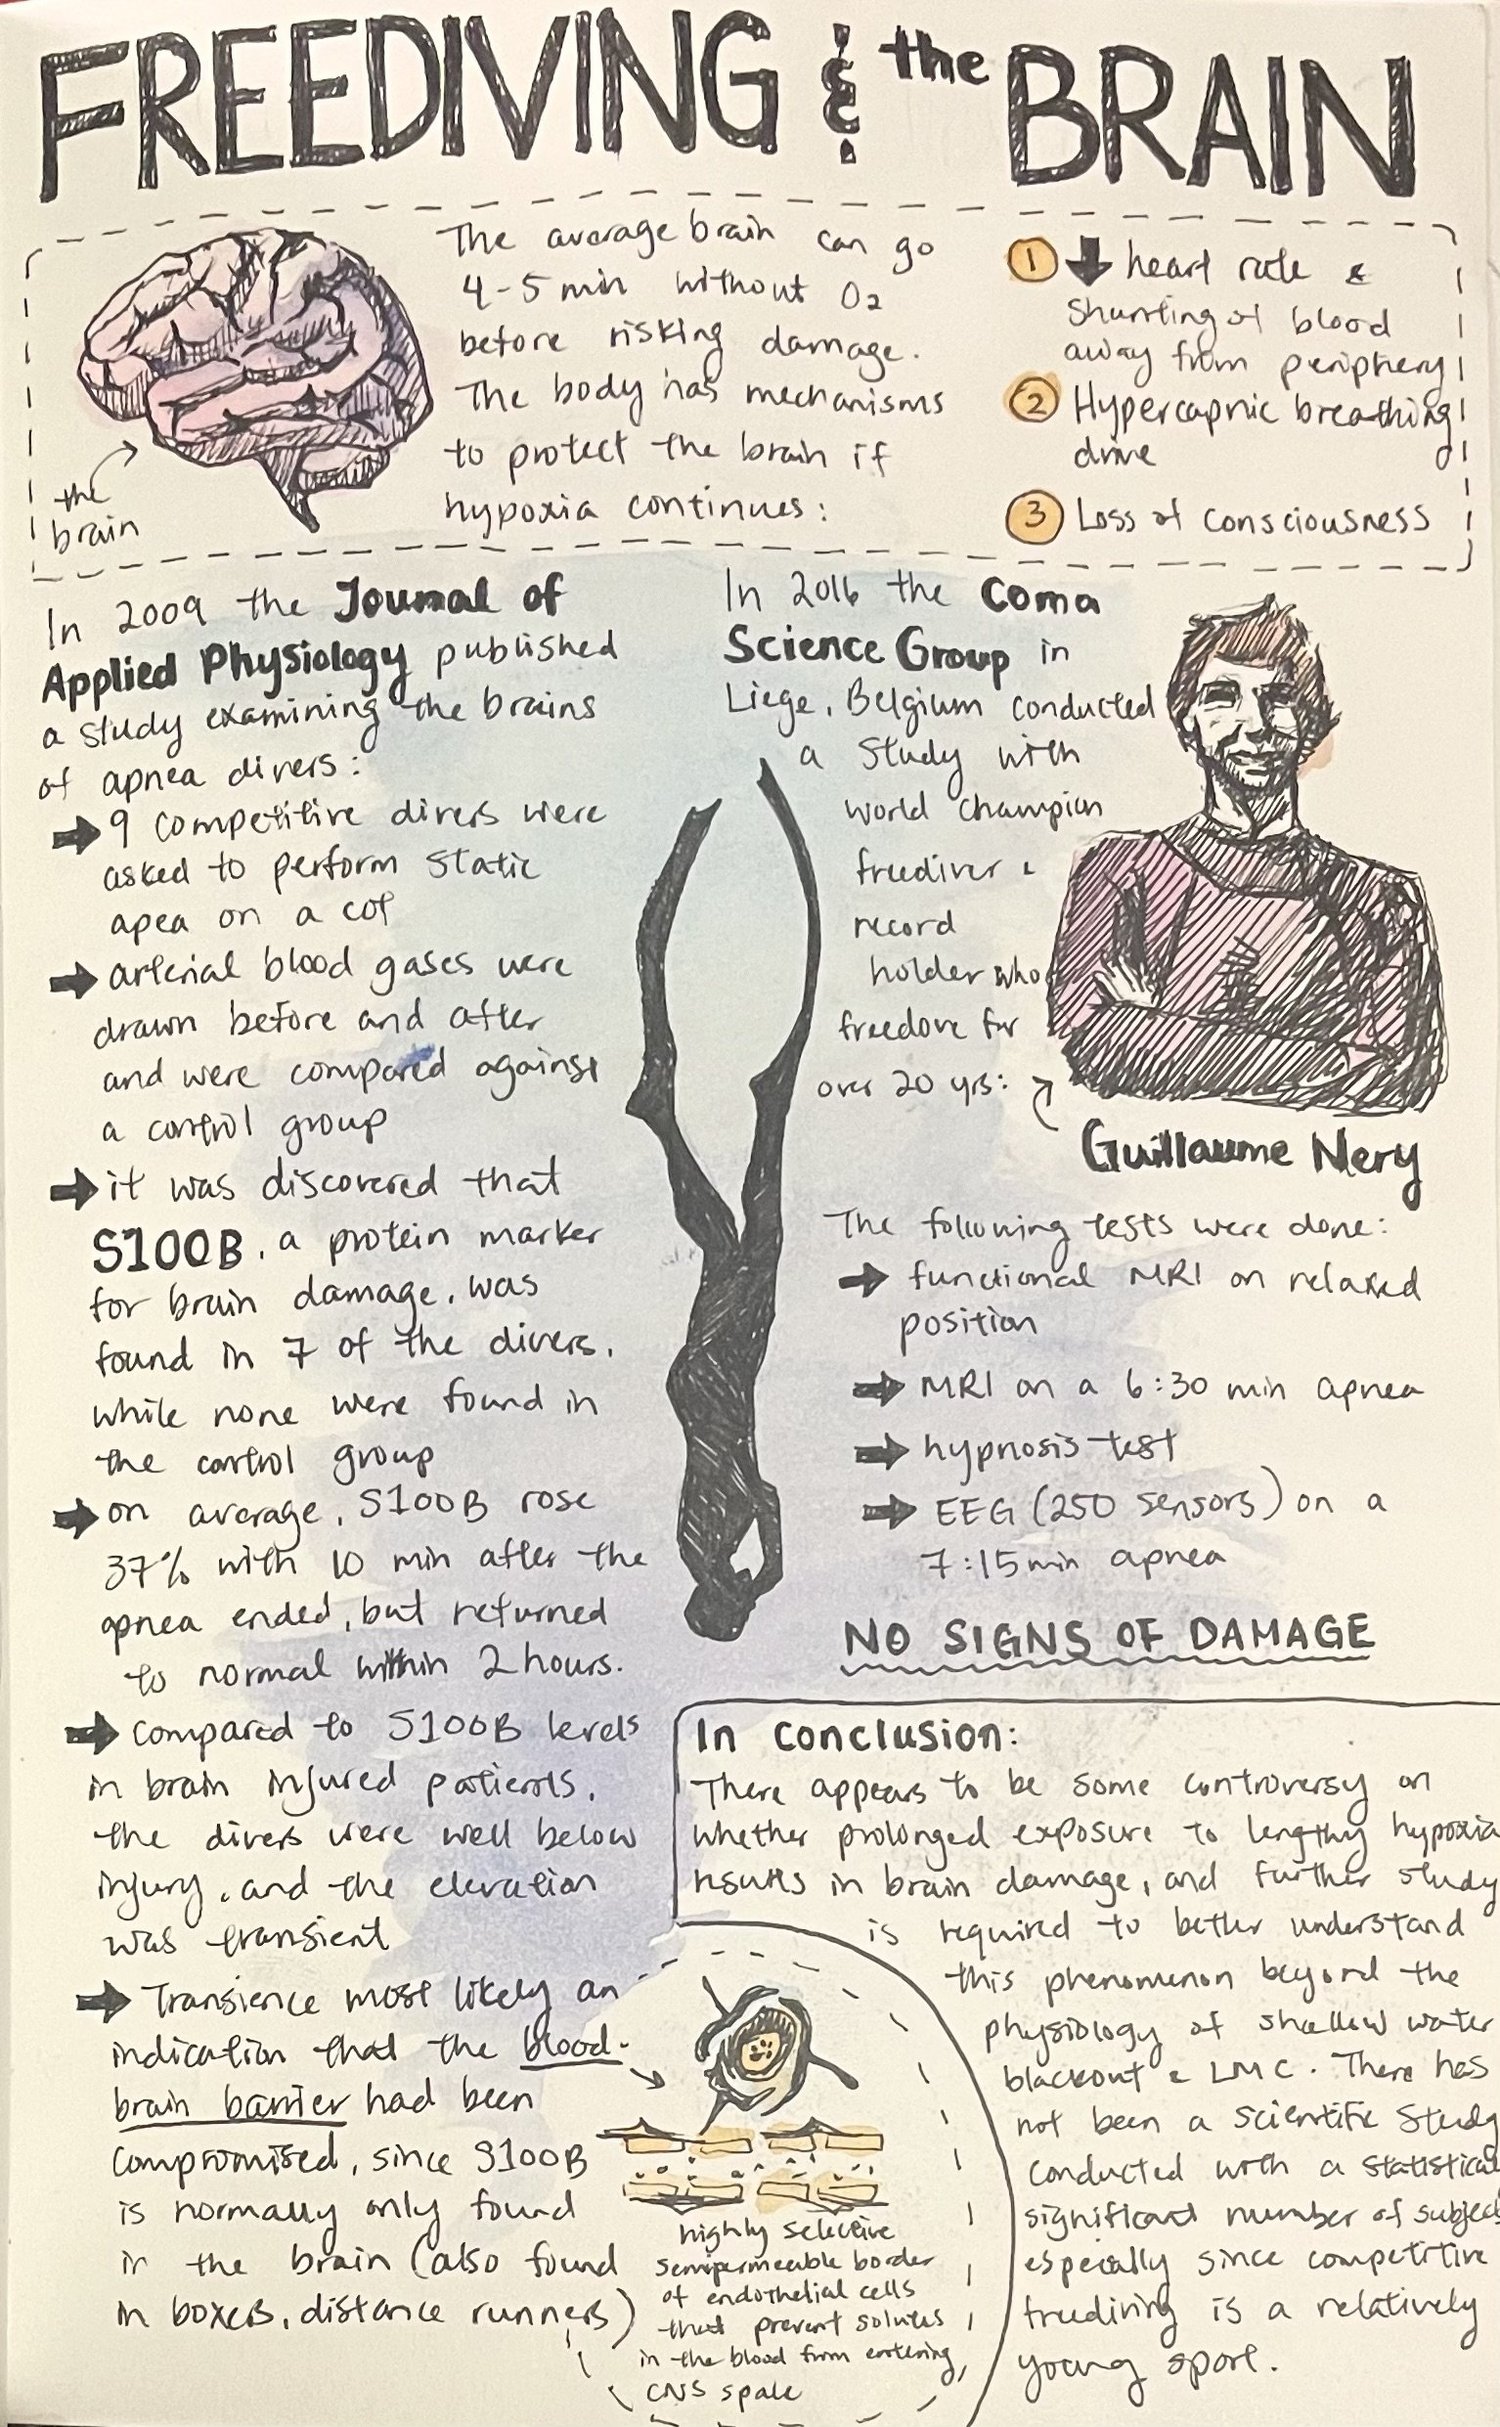 FREEDIVING & the BRAIN
The average brain can go
4-5 min without O2
before risking damage.
The body has mechanisms
to protect the brain if
hypoxia continues:
the
brain
1 ⬇ heart rate &
shunting of blood
away from periphery
2 Hypercapnic breathing
drive
3 Loss of consciousness
In 2009 the Journal of
Applied Physiology published
a study examining the brains
of apnea divers:
➡ 9 competitive divers were
asked to perform static
apea on a cot
➡ arterial blood gases were
drawn before and after
and were compared against
a control group
➡ it was discovered that
S100B, a protein marker
for brain damage, was
found in 7 of the divers,
while none were found in
the control group
➡ on average, S100B rose
37% with 10 min after the
apnea ended, but returned
to normal within 2 hours.
➡ compared to S100B levels
in brain injured patients,
the divers were well below
injury, and the elevation
was transient
➡ Transience most likely an
indication that the blood-
brain barrier had been
compromised, since S100B
is normally only found
in the brain (also found
in boxers, distance runners)
In 2016 the Coma
Science Group in
Liege, Belgium conducted
a study with
world champion
freediver &
record
holder who
freedove for
over 20 yrs:
Guillaume Nery
The following tests were done:
➡ functional MRI on relaxed
position
➡ MRI on a 6:30 min apnea
➡ hypnosis test
➡ EEG (250 sensors) on a
7:15 min apnea
NO SIGNS OF DAMAGE
In conclusion:
There appears to be some controversy on
whether prolonged exposure to lengthy hypoxia
results in brain damage, and further study
is required to better understand
this phenomenon beyond the
physiology of shallow water
blackout & LMC. There has
not been a scientific study
conducted with a statistical
significant number of subjects
especially since competitive
freediving is a relatively
young sport.
highly selective
semipermeable border
of endothelial cells
that prevent solutes
in the blood from entering
CNS spale